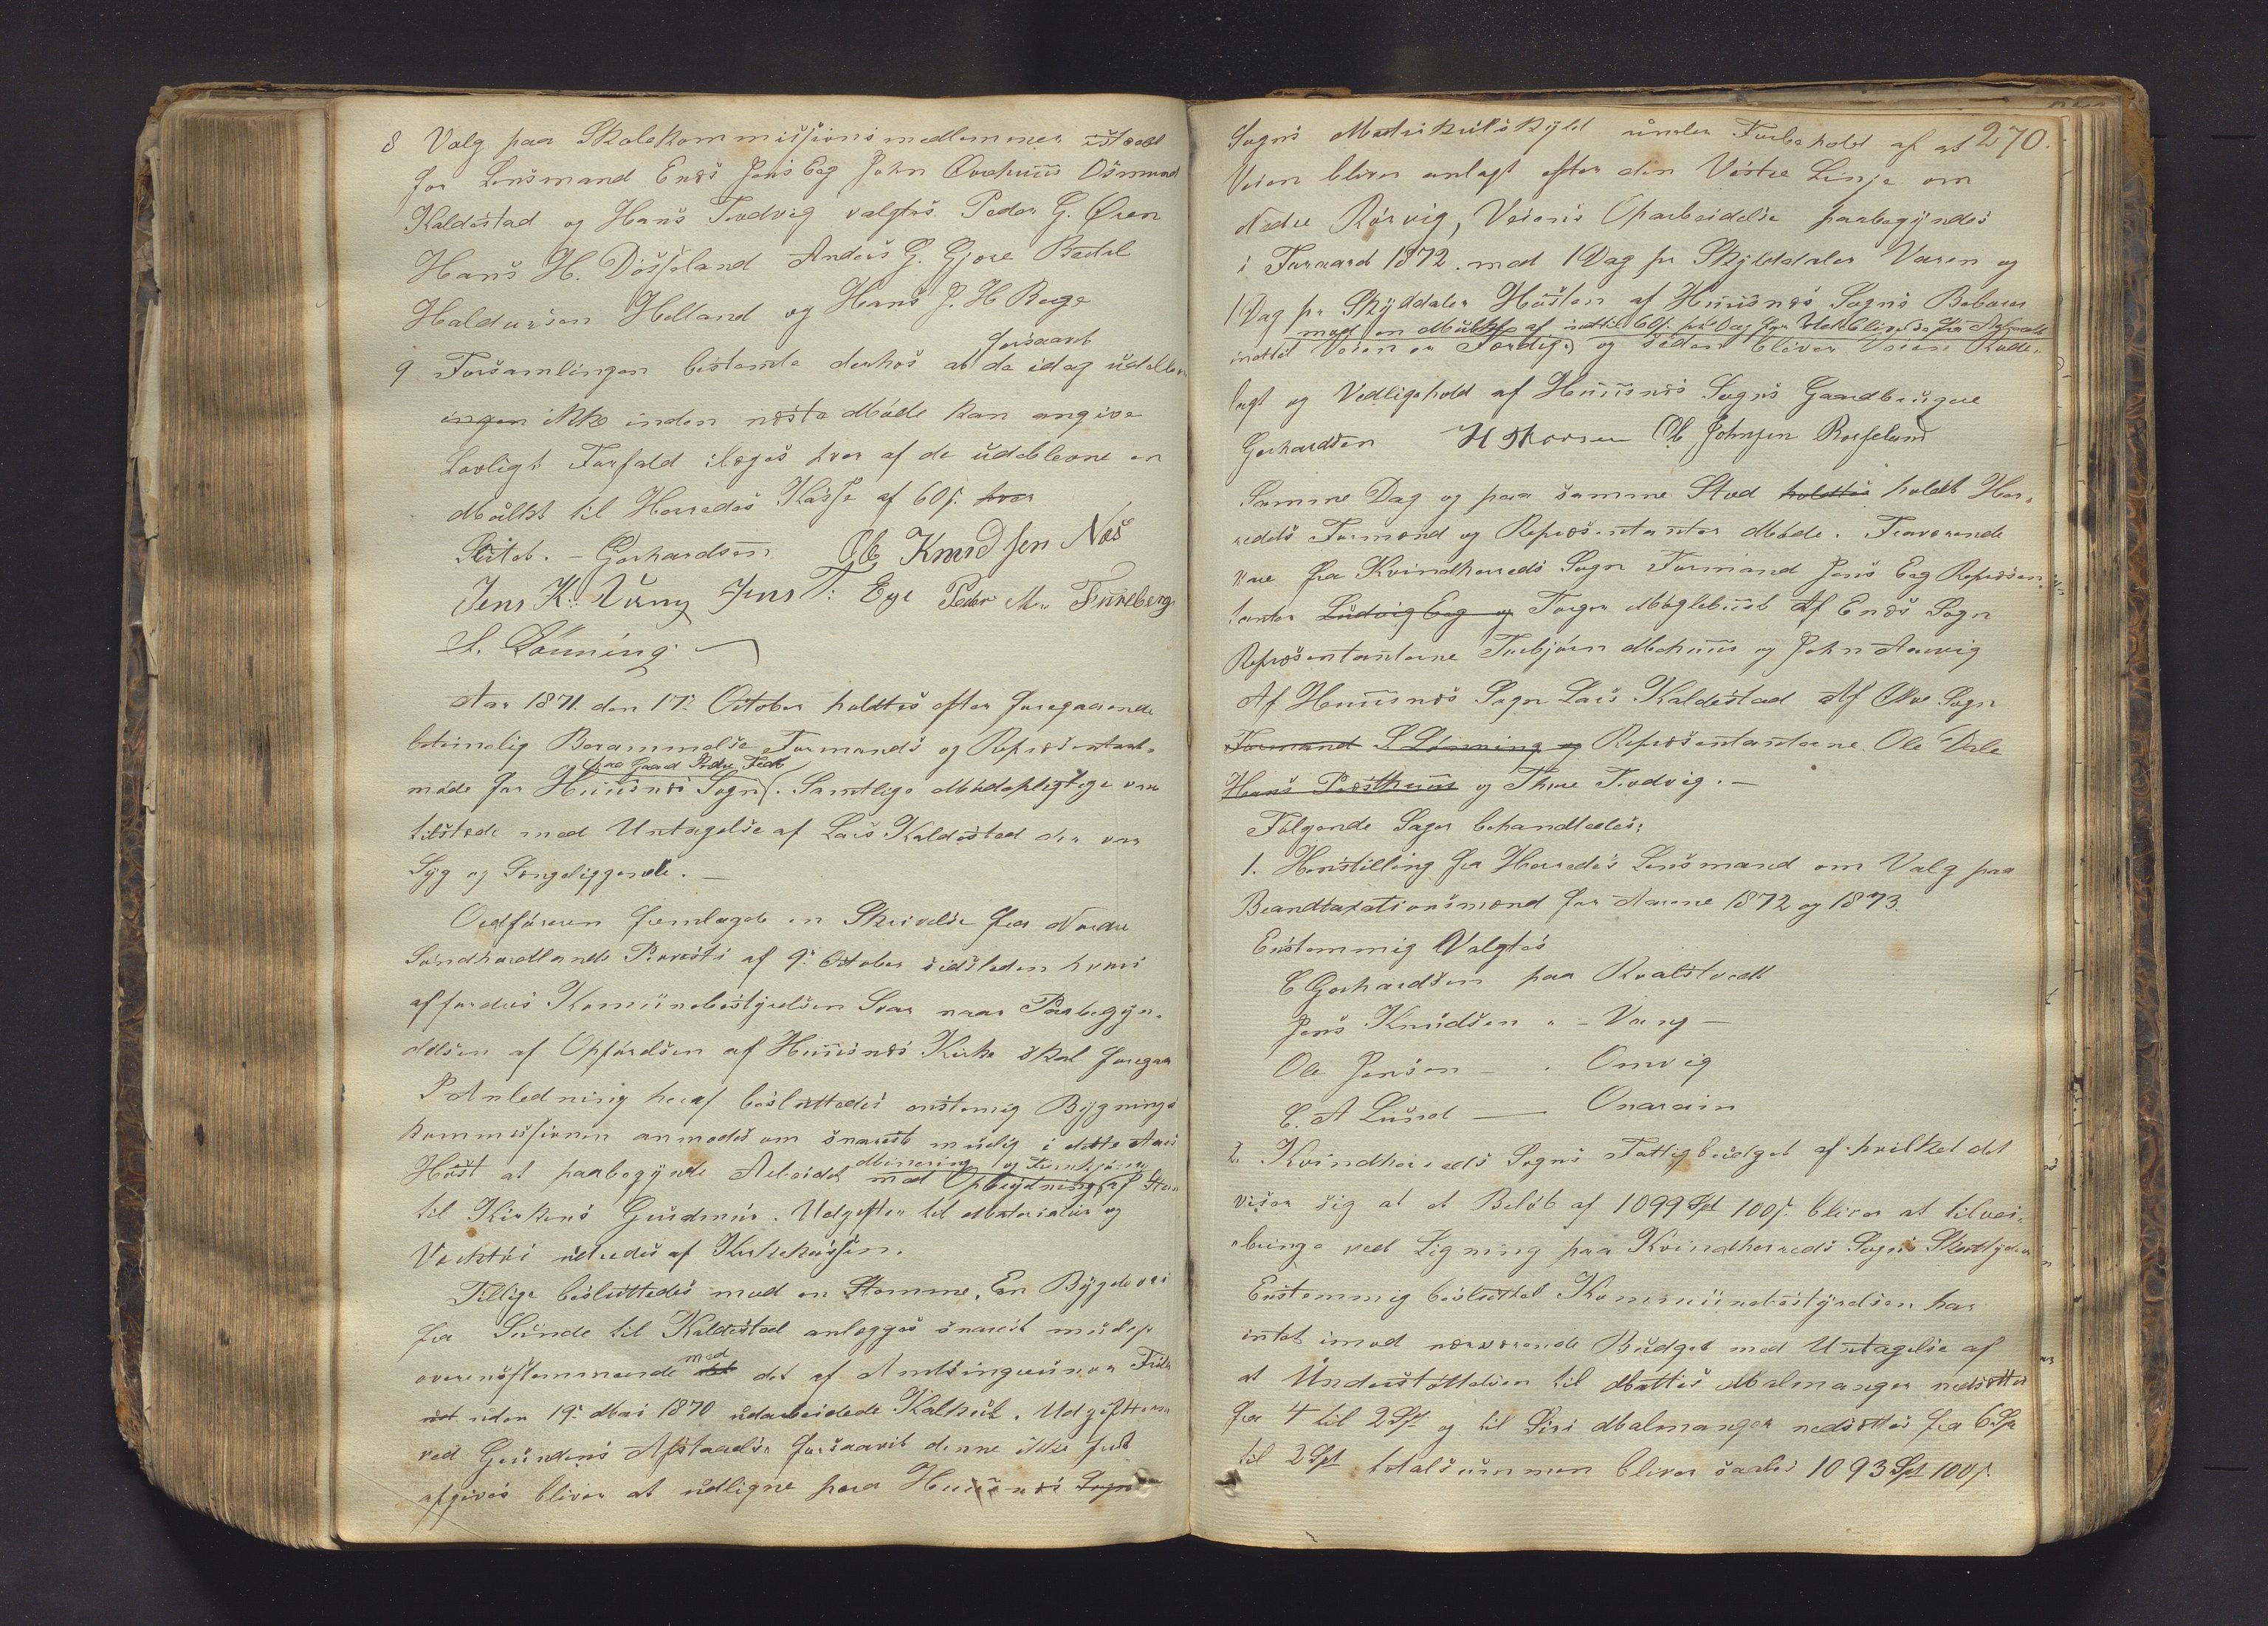 8 Valg paa Skolekommissionsmedlemmer istædet
for Lensmand Enæs Jens Eeg John Ovrehuus Osmund
Kaldestad og Hans Tvedvig valgtes. Peder G. Øren
Hans H. Døsseland Anders G. Gjøre Botel
Haldorsen Helland og Hans J. H. Berge
9 Forsamlingen bestemte derhos at de idag udebleven
forsaavt
ingen ikke inden næste Møde kan angive
Lovligt Forfald ilægges hver af de udeblevne en
Mulkt til Herredes Kasse af 60 s. hver
Sluttet. – Gerhardsen Ole Knudsen Næs
Jens K: Vang Jens T: Ege Peder M. Fureberg
S. Lönning
Aar 1871 den 17: October holdtes efter foregaaende
betimelig Berammelse Formands og Repræsentant-
paa Gaard Nedre Feet
møde for Huusnæs Sogn. Samtlige Mødepligtige var
tilstede med Untagelse af Lars Kaldestad der var
Syg og Sengeliggende. –
Ordføreren fremlagde en Skrivelse fra Nordre
Søndhordlands Provsti af 9: October sidstleden hvori
affordres Kommunebestyrelsen Svar naar Paabegyn-
delsen af Opførelsen af Huusnæs Kirke skal foregaa
I Anledning heraf besluttedes enstemig Bygnings
kommissionen anmodes om snarest mulig i dette Aars
Høst at paabegynde Arbeidet med Opbrydning af Steen
Minering og Fremkjøren
til Kirkens Grundmur. Udgifter til Materialier og
Værktøi udredes af Kirkekassen.
Tillige besluttedes mod en Stemme, En Bygdevei
fra Sunde til Kaldestad anlægges snarest muligt
overensstemmende det det af Amtsingeniør
med
under 19: Mai 1870 udarbeidede Kalkul. Udgifterne
ved Grundens Afstaaelse forsaavit denne ikke frit
afgives bliver at udligne paa Huusnæs Sogn
270.
Sogns Matrikulskyld under Forbehold af at
Veien bliver anlagt efter den Vestre Linje om
Nedre Rørvig, Veiens Oparbeidelse paabegyndes
i Foraaret 1872. med 1 Dag pr Skylddaler Vaaren og
1 Dag pr Skylddaler Høsten af Huusnæs Sogns Beboere
mod en Mulkt af indtil 60 s. pr Dag for Udeblivelse fra Arbeidet
indtil Veien er Færdig og siden bliver Veien Rode-
lagt og Vedligehold af Huusnæs Sogns Gaardbrugere
Gerhardsen Ole Johnsen Rosseland
Samme Dag og paa samme Sted holdtes holdt Her-
redets Formænd og Repræsentanter Møde. Fraværende
vare fra Kvindherreds Sogn Formand Jens Eeg Repræsen-
tanter Ludvig Eeg og Torger Møglebust Af Enæs Sogn
Repræsentanterne Torbjørn Mehuus og John Aarvig
Af Huusnæs Sogn Lars Kaldestad Af Ølve Sogn
Formand S Lønning og Repræsentanterne Ole Dale
Hans Præsthuus og Thore Tvedvig. –
Følgende Sager behandledes:
1. Henstilling fra Herredets Lensmand om Valg paa
Brandtaxationsmænd for Aarene 1872 og 1873.
Enstemmig Valgtes
E Gerhardsen paa Kvalstvedt
Jens Knudsen " – Vang –
Ole Jensen – . Omvig
E. A Lund –– Onareim
2. Kvindherreds Sogns Fattigbudget af hvilket det
viser sig at et Beløb af 1099 Spd 100 s. bliver at tilvei-
bringe ved Ligning paa Kvindherreds Sogns Skatteydere
Enstemmig besluttet Kommunebestyrelsen har
intet imod nærværende Budget med Untagelse af
at Understøttelsen til Mattis Malmanger nedsættes
fra 4 til 2 Spd og til Siri Malmanger nedsættes fra 6 Spd
til 2 Spd totalsummen bliver saales 1093 Spd 100 s.